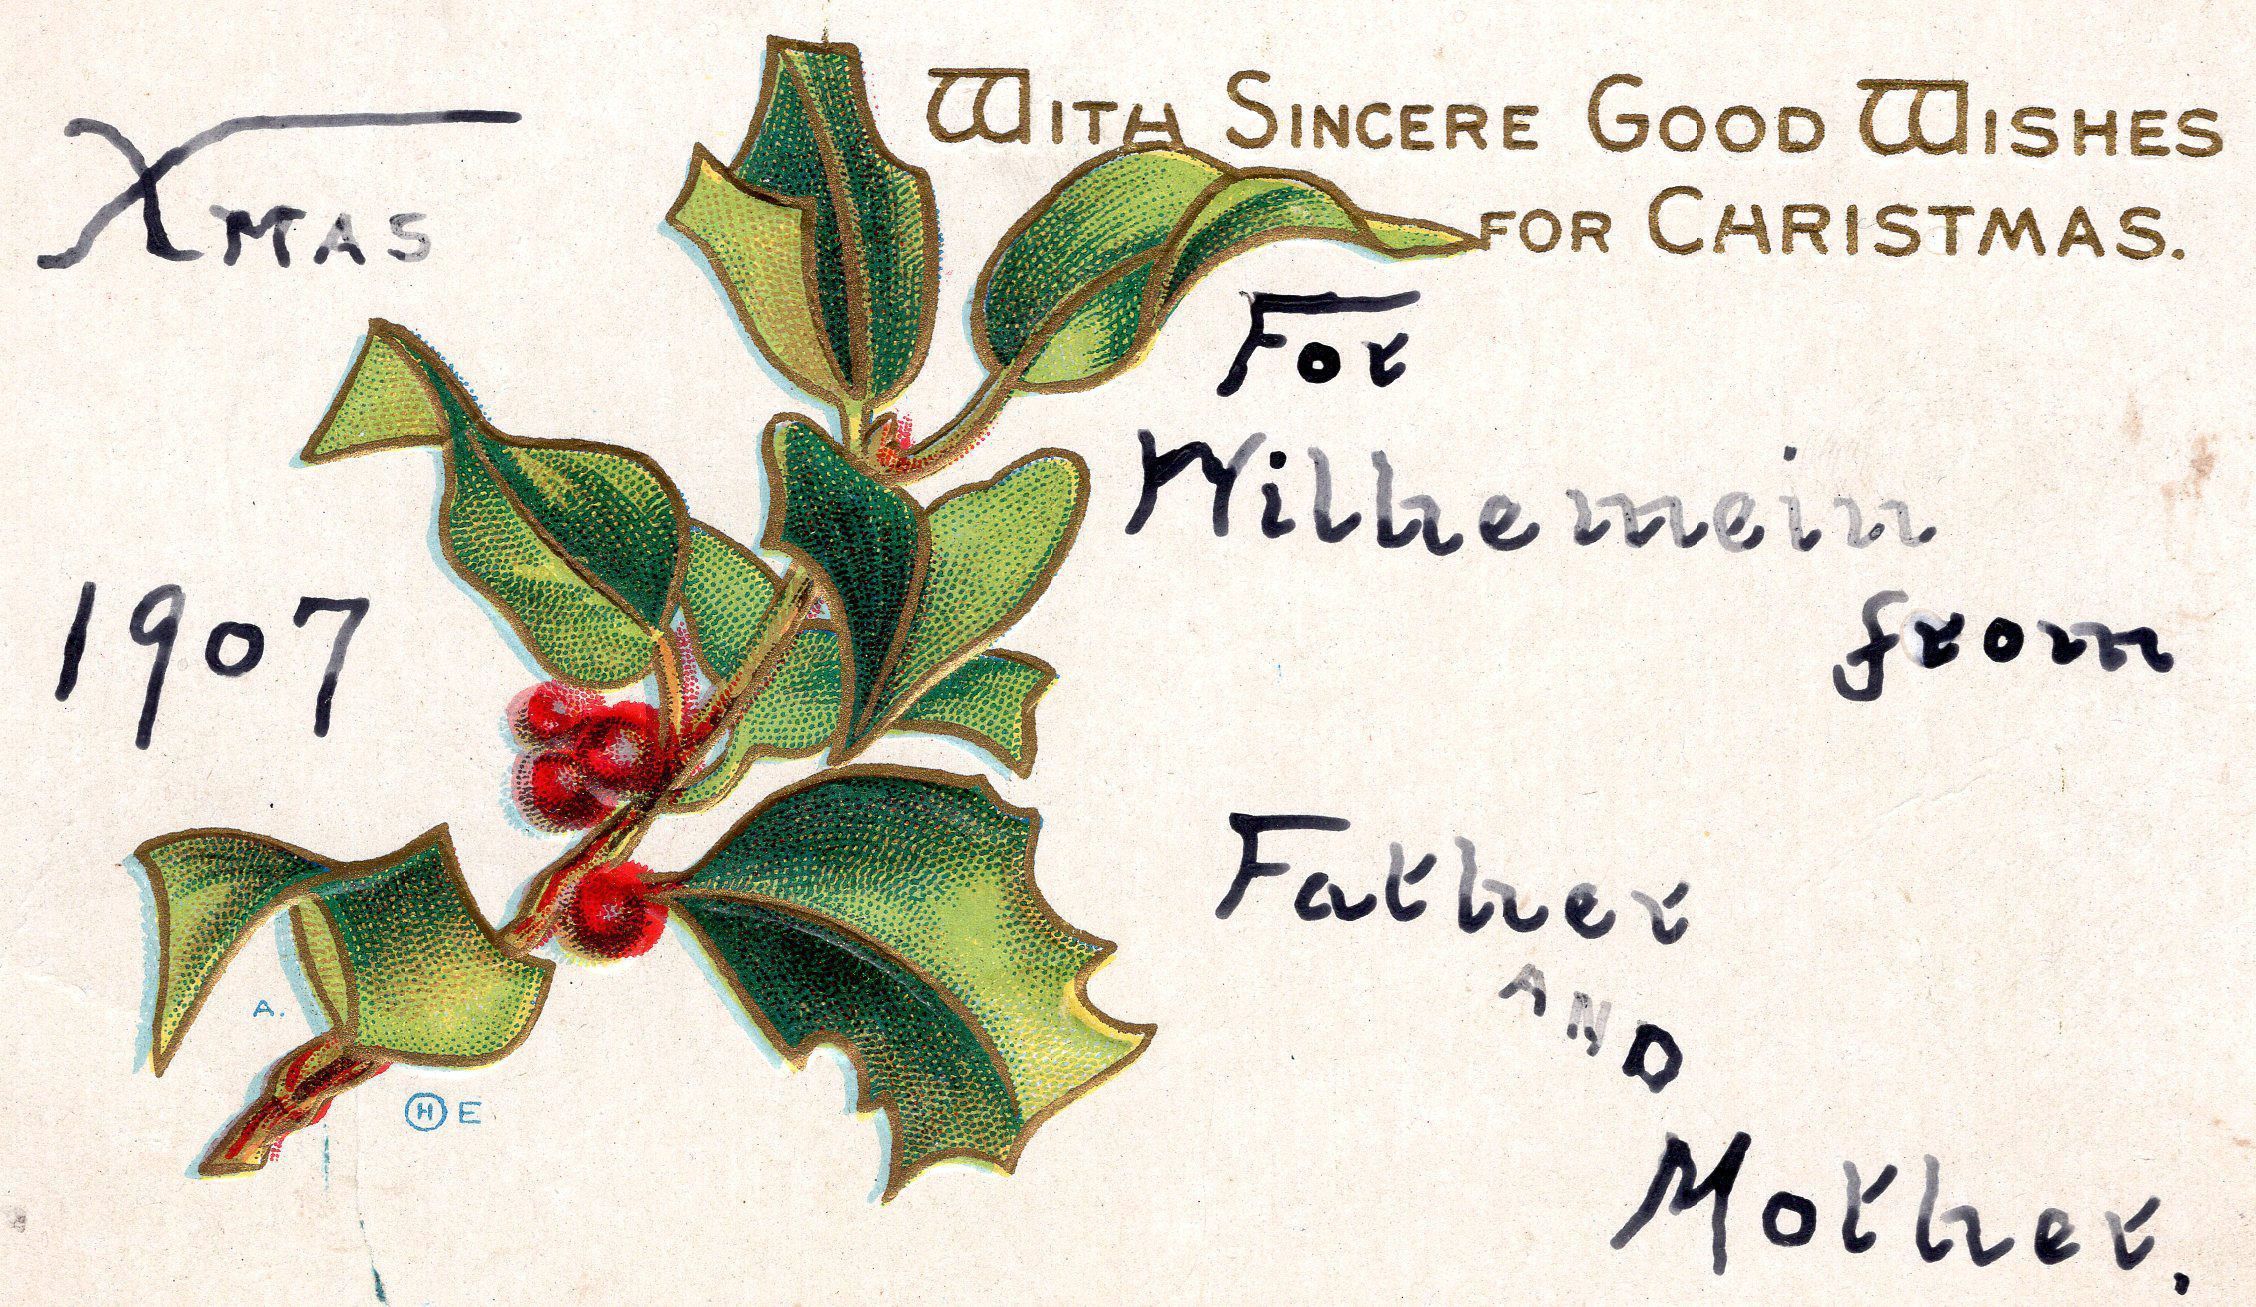 WITH SINCERE GOOD WISHES
FOR CHRISTMAS.
XMAS
1907
For
Wilhemein
from
Father
AND
Mother.
A.
H E